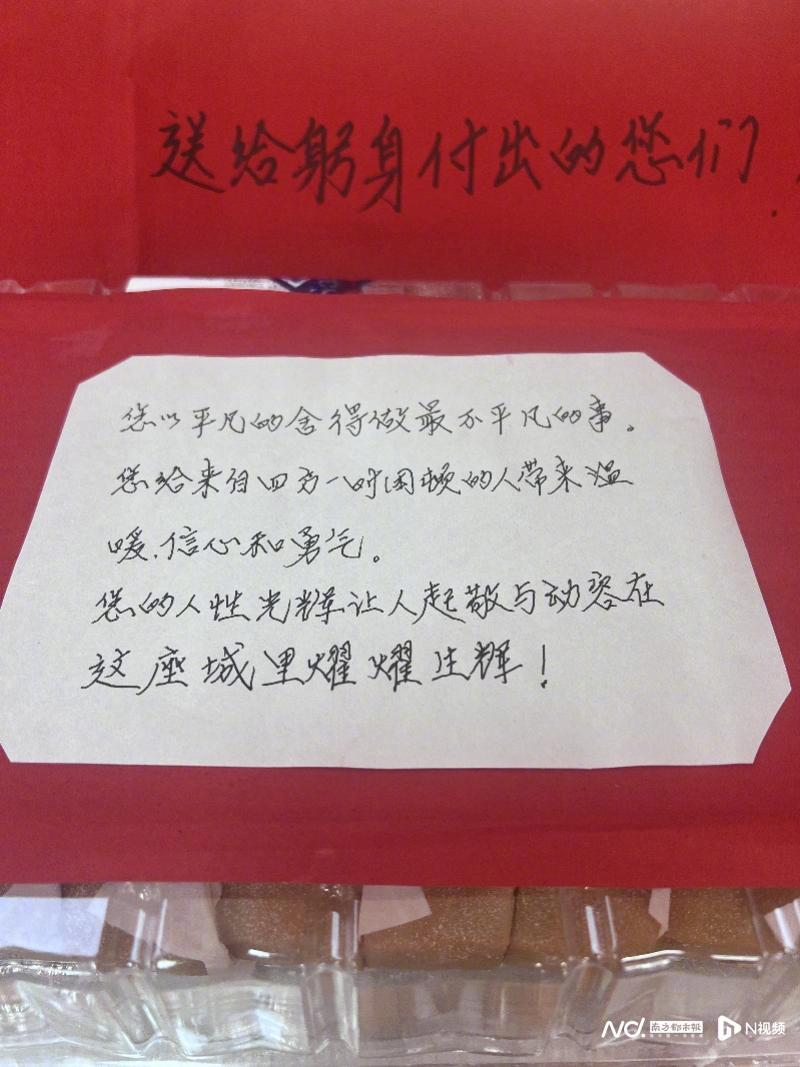 送给躬身付出的您们.
您以平凡的舍得做最不平凡的事。
您给来自四方一时困顿的人带来温
暖.信心和勇气。
您的人性光辉让人起敬与动容在
这座城里耀耀生辉！
南方都市报
N视频